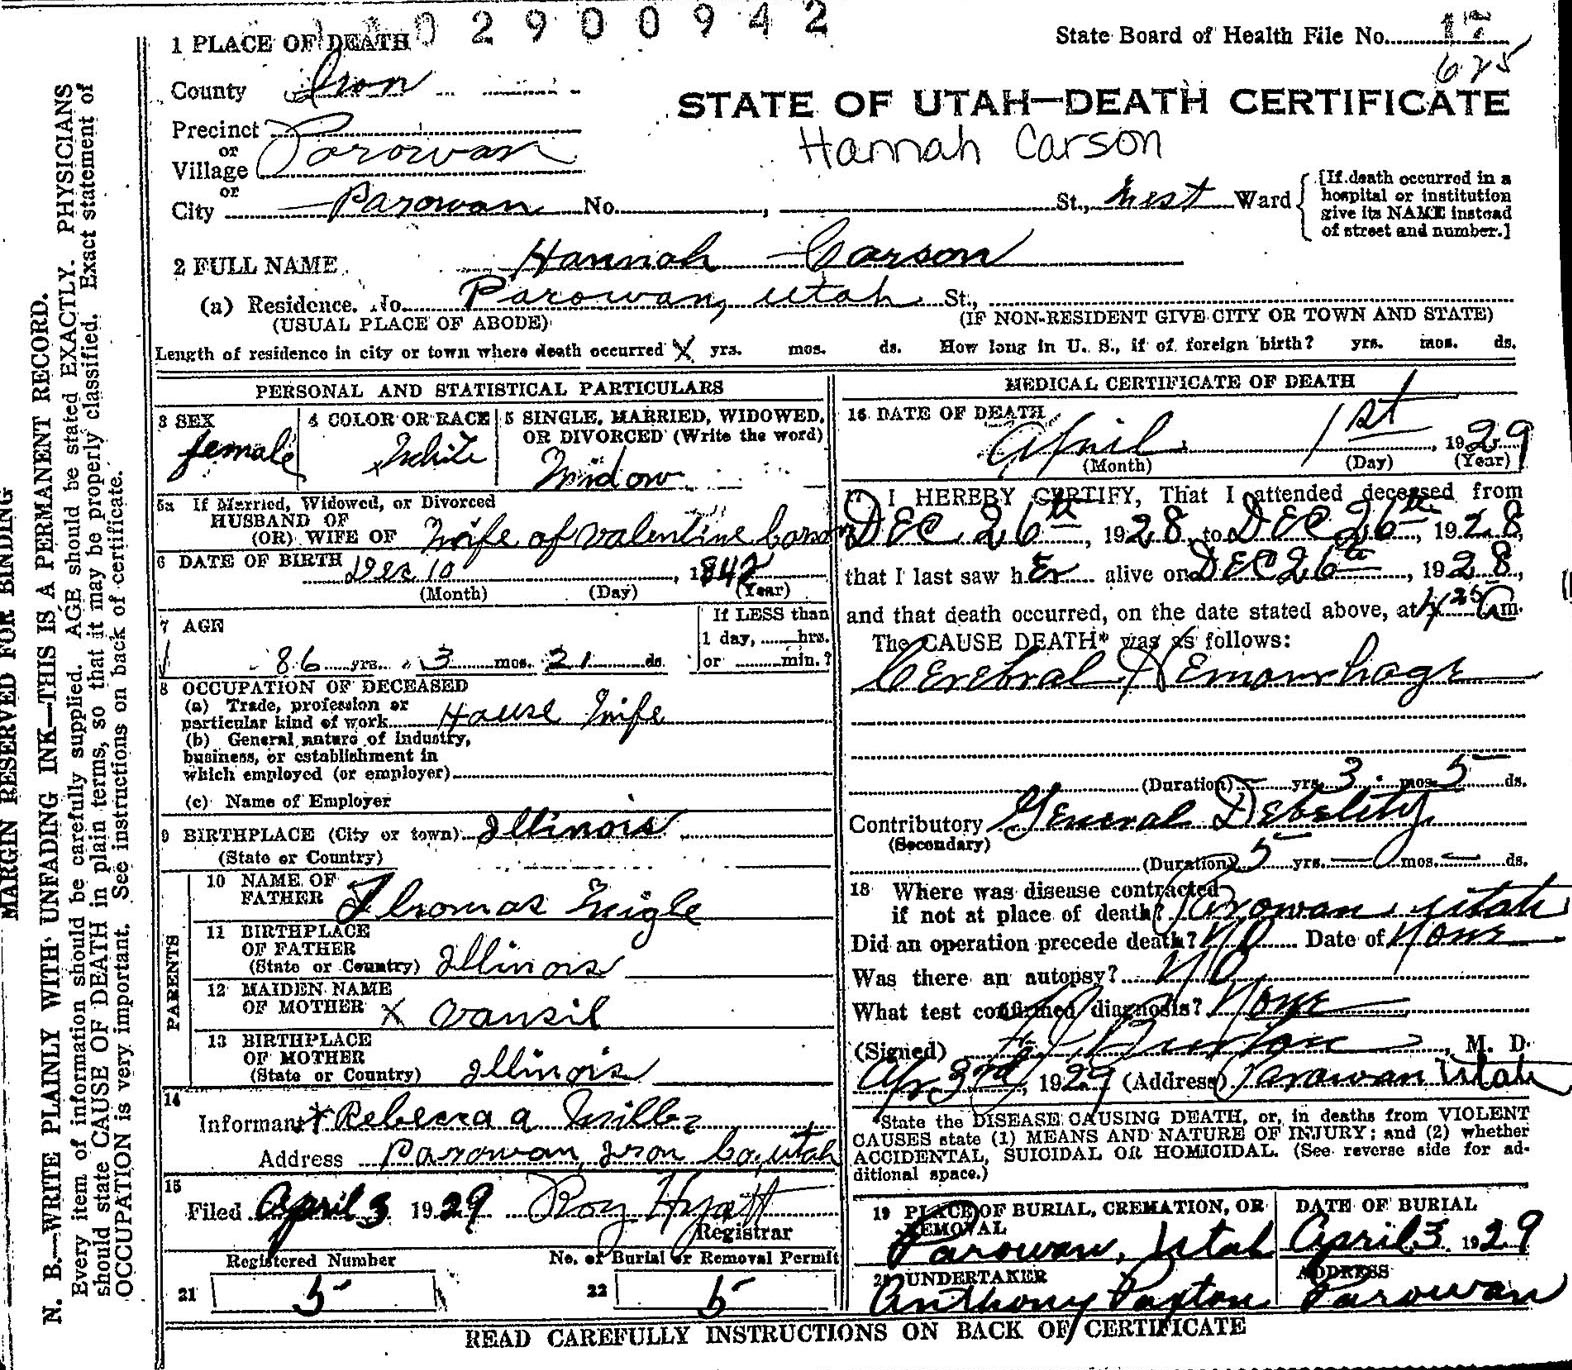 2900942
1 PLACE OF DEATH
State Board of Health File No. 17
625
County Iron
STATE OF UTAH—DEATH CERTIFICATE
Hannah Carson
Precinct
or
Village Parowan
or
City Parowan No. , St., West Ward
[If death occurred in a
hospital or institution
give its NAME instead
of street and number.]
2 FULL NAME Hannah Carson
(a) Residence. No. Parowan, Utah St.,
(USUAL PLACE OF ABODE) (IF NON-RESIDENT GIVE CITY OR TOWN AND STATE)
Length of residence in city or town where death occurred X yrs. mos. ds. How long in U. S., if of foreign birth? yrs. mos. ds.
PERSONAL AND STATISTICAL PARTICULARS
3 SEX
female
4 COLOR OR RACE
White
5 SINGLE, MARRIED, WIDOWED,
OR DIVORCED (Write the word)
Widow
5a If Married, Widowed, or Divorced
HUSBAND OF
(OR) WIFE OF Wife of Valentine Carson
6 DATE OF BIRTH Dec 10, 1842
(Month) (Day) (Year)
7 AGE
86 yrs. 3 mos. 21 ds.
If LESS than
1 day, hrs.
or min.?
8 OCCUPATION OF DECEASED
(a) Trade, profession or
particular kind of work House Wife
(b) General nature of industry,
business, or establishment in
which employed (or employer)
(c) Name of Employer
9 BIRTHPLACE (City or town) Illinois
(State or Country)
PARENTS
10 NAME OF
FATHER Thomas
11 BIRTHPLACE
OF FATHER
(State or Country) Illinois
12 MAIDEN NAME
OF MOTHER X Vansil
13 BIRTHPLACE
OF MOTHER
(State or Country) Illinois
14
Informant Rebecca a
Address Parowan, Iron Co, Utah
15
Filed April 3 1929 Roy Hyatt
Registrar
Registered Number
21 5
No. of Burial or Removal Permit
22 5
MEDICAL CERTIFICATE OF DEATH
16 DATE OF DEATH
April 1st, 1929
(Month) (Day) (Year)
17 I HEREBY CERTIFY, That I attended deceased from
DEC 26th, 1928, to DEC 26th, 1928,
that I last saw her alive on DEC 26th, 1928,
and that death occurred, on the date stated above, at am.
The CAUSE DEATH* was as follows:
Cerebral Hemorrhage
(Duration) yrs. 3 mos. 5 ds.
Contributory General Debelity
(Secondary)
(Duration) 5 yrs. — mos. — ds.
18 Where was disease contracted
if not at place of death? Parowan Utah
Did an operation precede death? NO Date of None
Was there an autopsy? NO
What test confirmed diagnosis? None
(Signed) , M. D.
Apr 3rd, 1929 (Address) Parowan Utah
*State the DISEASE CAUSING DEATH, or, in deaths from VIOLENT
CAUSES state (1) MEANS AND NATURE OF INJURY; and (2) whether
ACCIDENTAL, SUICIDAL OR HOMICIDAL. (See reverse side for ad-
ditional space.)
19 PLACE OF BURIAL, CREMATION, OR
REMOVAL
Parowan, Utah
DATE OF BURIAL
April 3 1929
20 UNDERTAKER
Anthony Paxton
ADDRESS
Parowan
READ CAREFULLY INSTRUCTIONS ON BACK OF CERTIFICATE
MARGIN RESERVED FOR BINDING
N. B.—WRITE PLAINLY WITH UNFADING INK—THIS IS A PERMANENT RECORD.
Every item of information should be carefully supplied. AGE should be stated EXACTLY. PHYSICIANS
should state CAUSE OF DEATH in plain terms, so that it may be properly classified. Exact statement of
OCCUPATION is very important. See instructions on back of certificate.